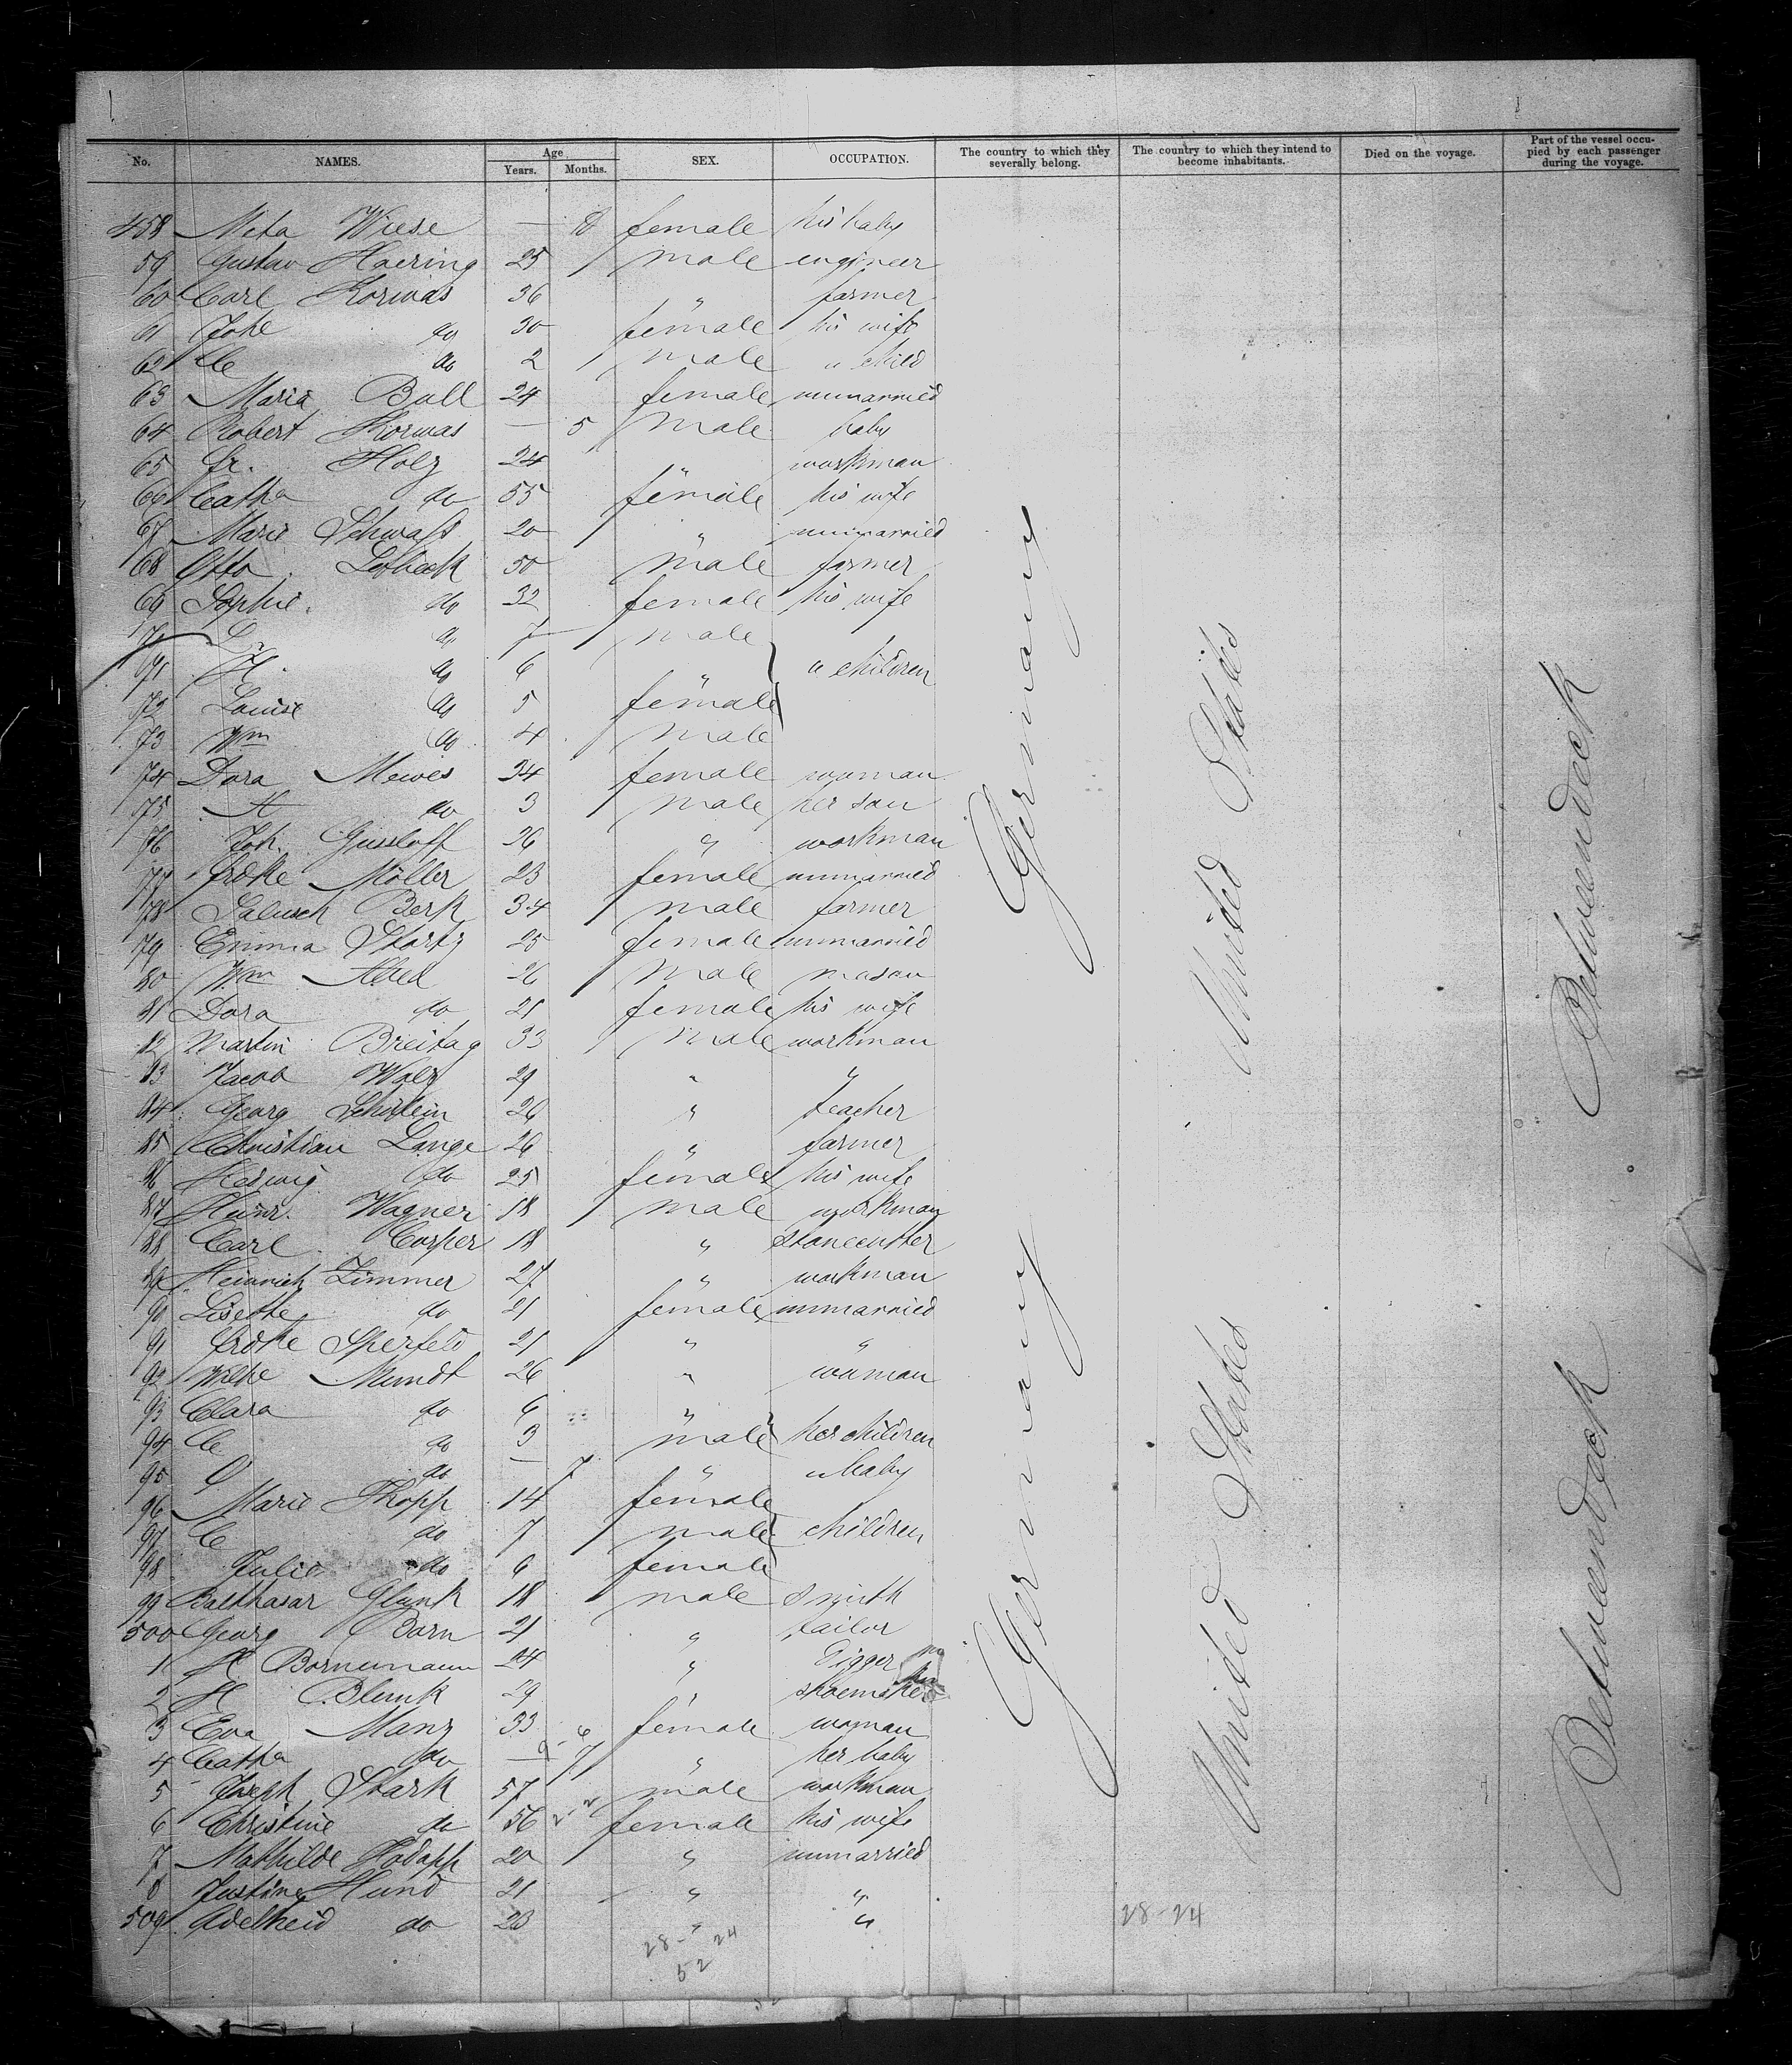 No. NAMES. Age Years. Months. SEX. OCCUPATION. The country to which they severally belong. The country to which they intend to become inhabitants. Died on the voyage. Part of the vessel occupied by each passenger during the voyage.
458 Meta Wiese — 8 female his baby
59 Gustav Haering 25 male engineer
60 Carl Korwas 36 " farmer
61 Joke do 30 female his wife
62 C do 2 male " child
63 Maria Bull 24 female unmarried
64 Robert Korwas — 5 male baby
65 Fr. Holz 24 " workman
66 Catha do 55 female his wife
67 Marie Schwass 20 " unmarried
68 Otto Lobeck 30 male farmer
69 Sophie do 32 female his wife
70 L do 7 male
71 H. do 6 " " children
72 Louise do 5 female
73 Wm do 4 male
74 Dora Mewes 34 female woman
75 A do 3 male her son
76 Joh. Gussloff 26 " workman
77 Frdke Möller 23 female unmarried
78 Salusch Berk 34 male farmer
79 Emma Startz 25 female unmarried
80 Wm Abel 26 male mason
81 Dora do 21 female his wife
82 Martin Breitag 33 male workman
83 Jacob Walz 29 " "
84 Georg 26 " teacher
85 Christian Lange 26 " farmer
86 Hedwig do 25 female his wife
87 Heinr. Wagner 18 male workman
88 Carl Casper 18 " stonecutter
89 Heinrich Zimmer 27 " workman
90 Lisette do 21 female unmarried
91 Frdke Sperfeld 21 " "
92 Wilhe Mundt 26 " woman
93 Clara do 6 "
94 C do 3 male her children
95 O do — 7 " " baby
96 Marie Thopp 14 female
97 C do 7 male children
98 Julie do 6 female
99 Balthasar Glunk 18 male smith
500 Georg Born 21 " tailor
1 H. Bornemann 24 " digger
2 H Blenk 29 " shoemaker
3 Eva Manz 33 female woman
4 Catha do — 7 " her baby
5 Joseph Stark 57 male workman
6 Christine do 56 female his wife
7 Mathilde Hodapp 20 " unmarried
8 Justine Hund 21 " "
509 Adelheid do 23 " "
Germany United States Betweendeck
Germany United States Betweendeck
28-24
28-24
52